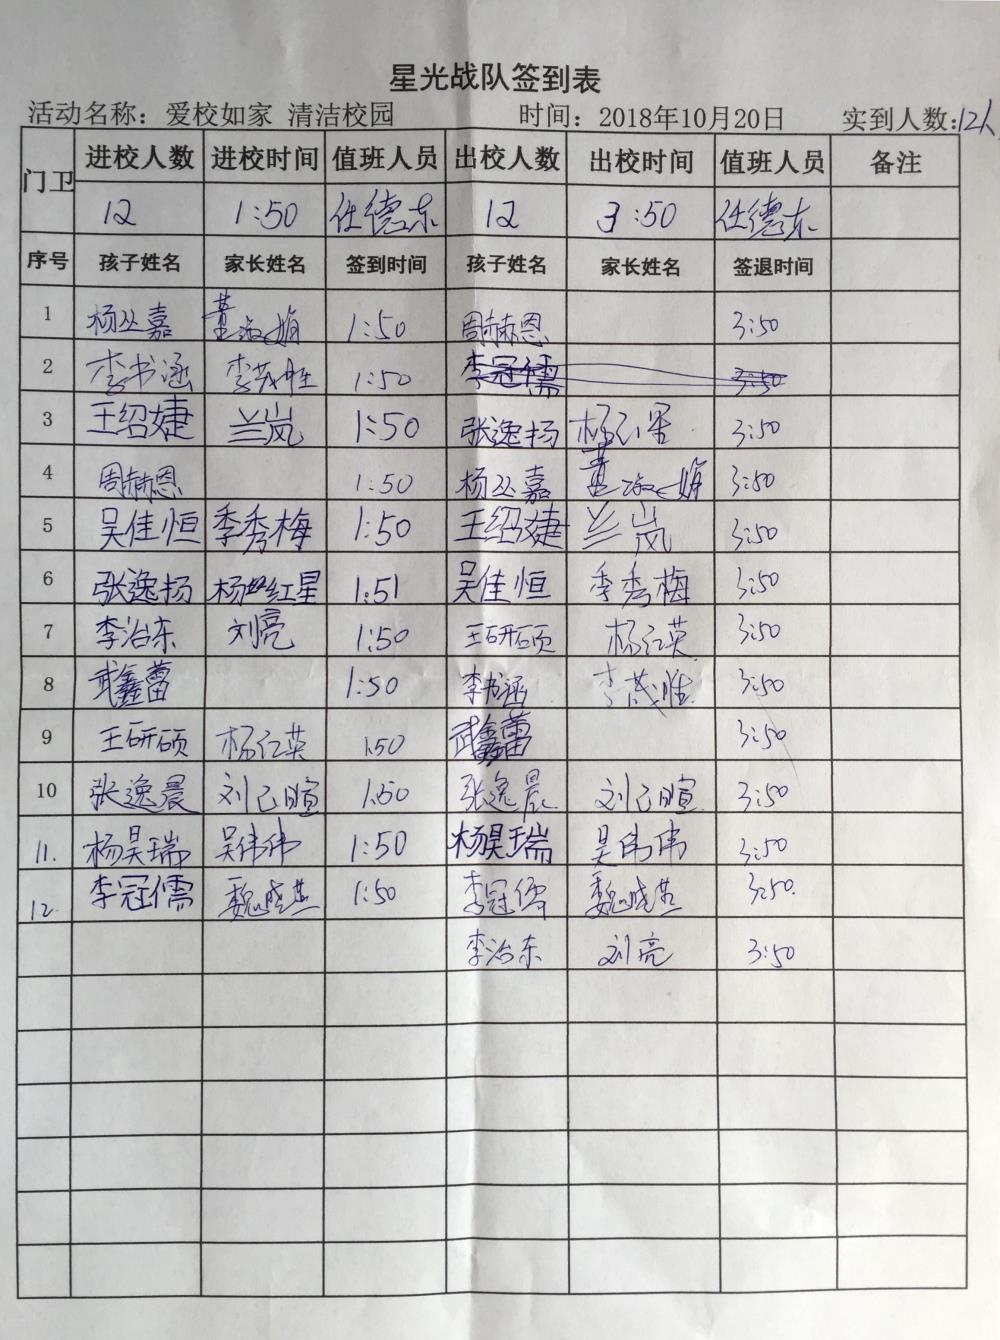 星光战队签到表
活动名称：爱校如家 清洁校园 时间：2018年10月20日 实到人数:12人
门卫 进校人数 进校时间 值班人员 出校人数 出校时间 值班人员 备注
12 1:50 任德东 12 3:50 任德东
序号 孩子姓名 家长姓名 签到时间 孩子姓名 家长姓名 签退时间
1 杨丛嘉 董淑娟 1:50 周赫恩 3:50
2 李书涵 李茂胜 1:50 李冠儒 3:50
3 王绍婕 兰岚 1:50 张逸扬 杨红星 3:50
4 周赫恩 1:50 杨丛嘉 董淑娟 3:50
5 吴佳恒 季秀梅 1:50 王绍婕 兰岚 3:50
6 张逸扬 杨红星 1:51 吴佳恒 季秀梅 3:50
7 李治东 刘亮 1:50 王研硕 杨红英 3:50
8 武鑫蕾 1:50 李书涵 李茂胜 3:50
9 王研硕 杨红英 1:50 武鑫蕾 3:50
10 张逸晨 刘己暄 1:50 张逸晨 刘己暄 3:50
11. 杨昊瑞 吴伟伟 1:50 杨昊瑞 吴伟伟 3:50
12. 李冠儒 魏晓燕 1:50 李冠儒 魏晓燕 3:50.
李治东 刘亮 3:50